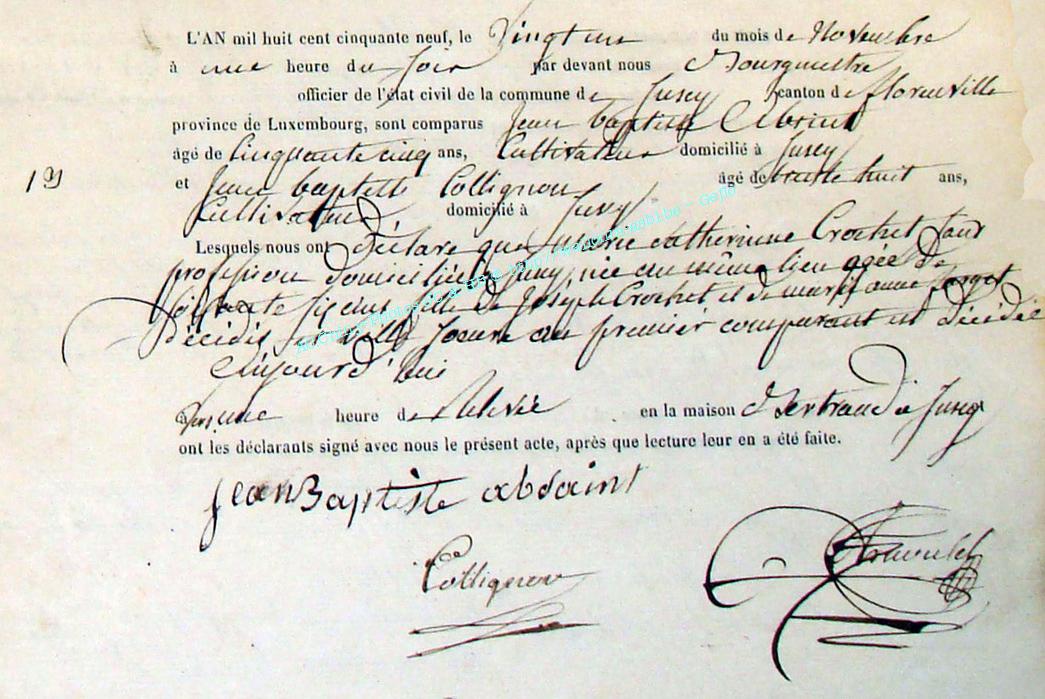 L'AN mil huit cent cinquante neuf, le Vingt un du mois de Novembre
à une heure du Soir par devant nous Bourgmestre
officier de l'état civil de la commune de Jusey canton de florenville
province de Luxembourg, sont comparus Jean baptiste Absint
âgé de Cinquante cinq ans, Cultivateur domicilié à Jusey
et Jean baptiste Collignon âgé de huit ans,
Cultivateur domicilié à Jusey
Lesquels nous ont déclaré que Marie Catherinne Crochet sans
profession domiciliée à Jusey, née au même lieu agée de
ans fille de Joseph Crochet et de marie anne
décédés au premier comparant est décédée
Aujourd'hui
à une heure de Relevée en la maison de Jusey
ont les déclarants signé avec nous le présent acte, après que lecture leur en a été faite.
Jean Baptiste absaint
Collignon